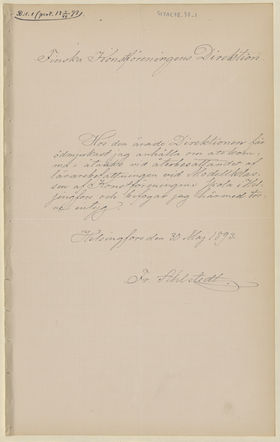 Finska Konstföreningens Direktion
Hos den ärade Direktionen får
ödmjukast jag anhålla om att komma
i åtanke vid återbesättandet af
lärarebefattningen vid Modellklas-
sen af Konstföreningens skola i Hel-
singfors och bifogar jag härmed
Helsingfors den 30 Maj 1893.
Fr. Ahlstedt.